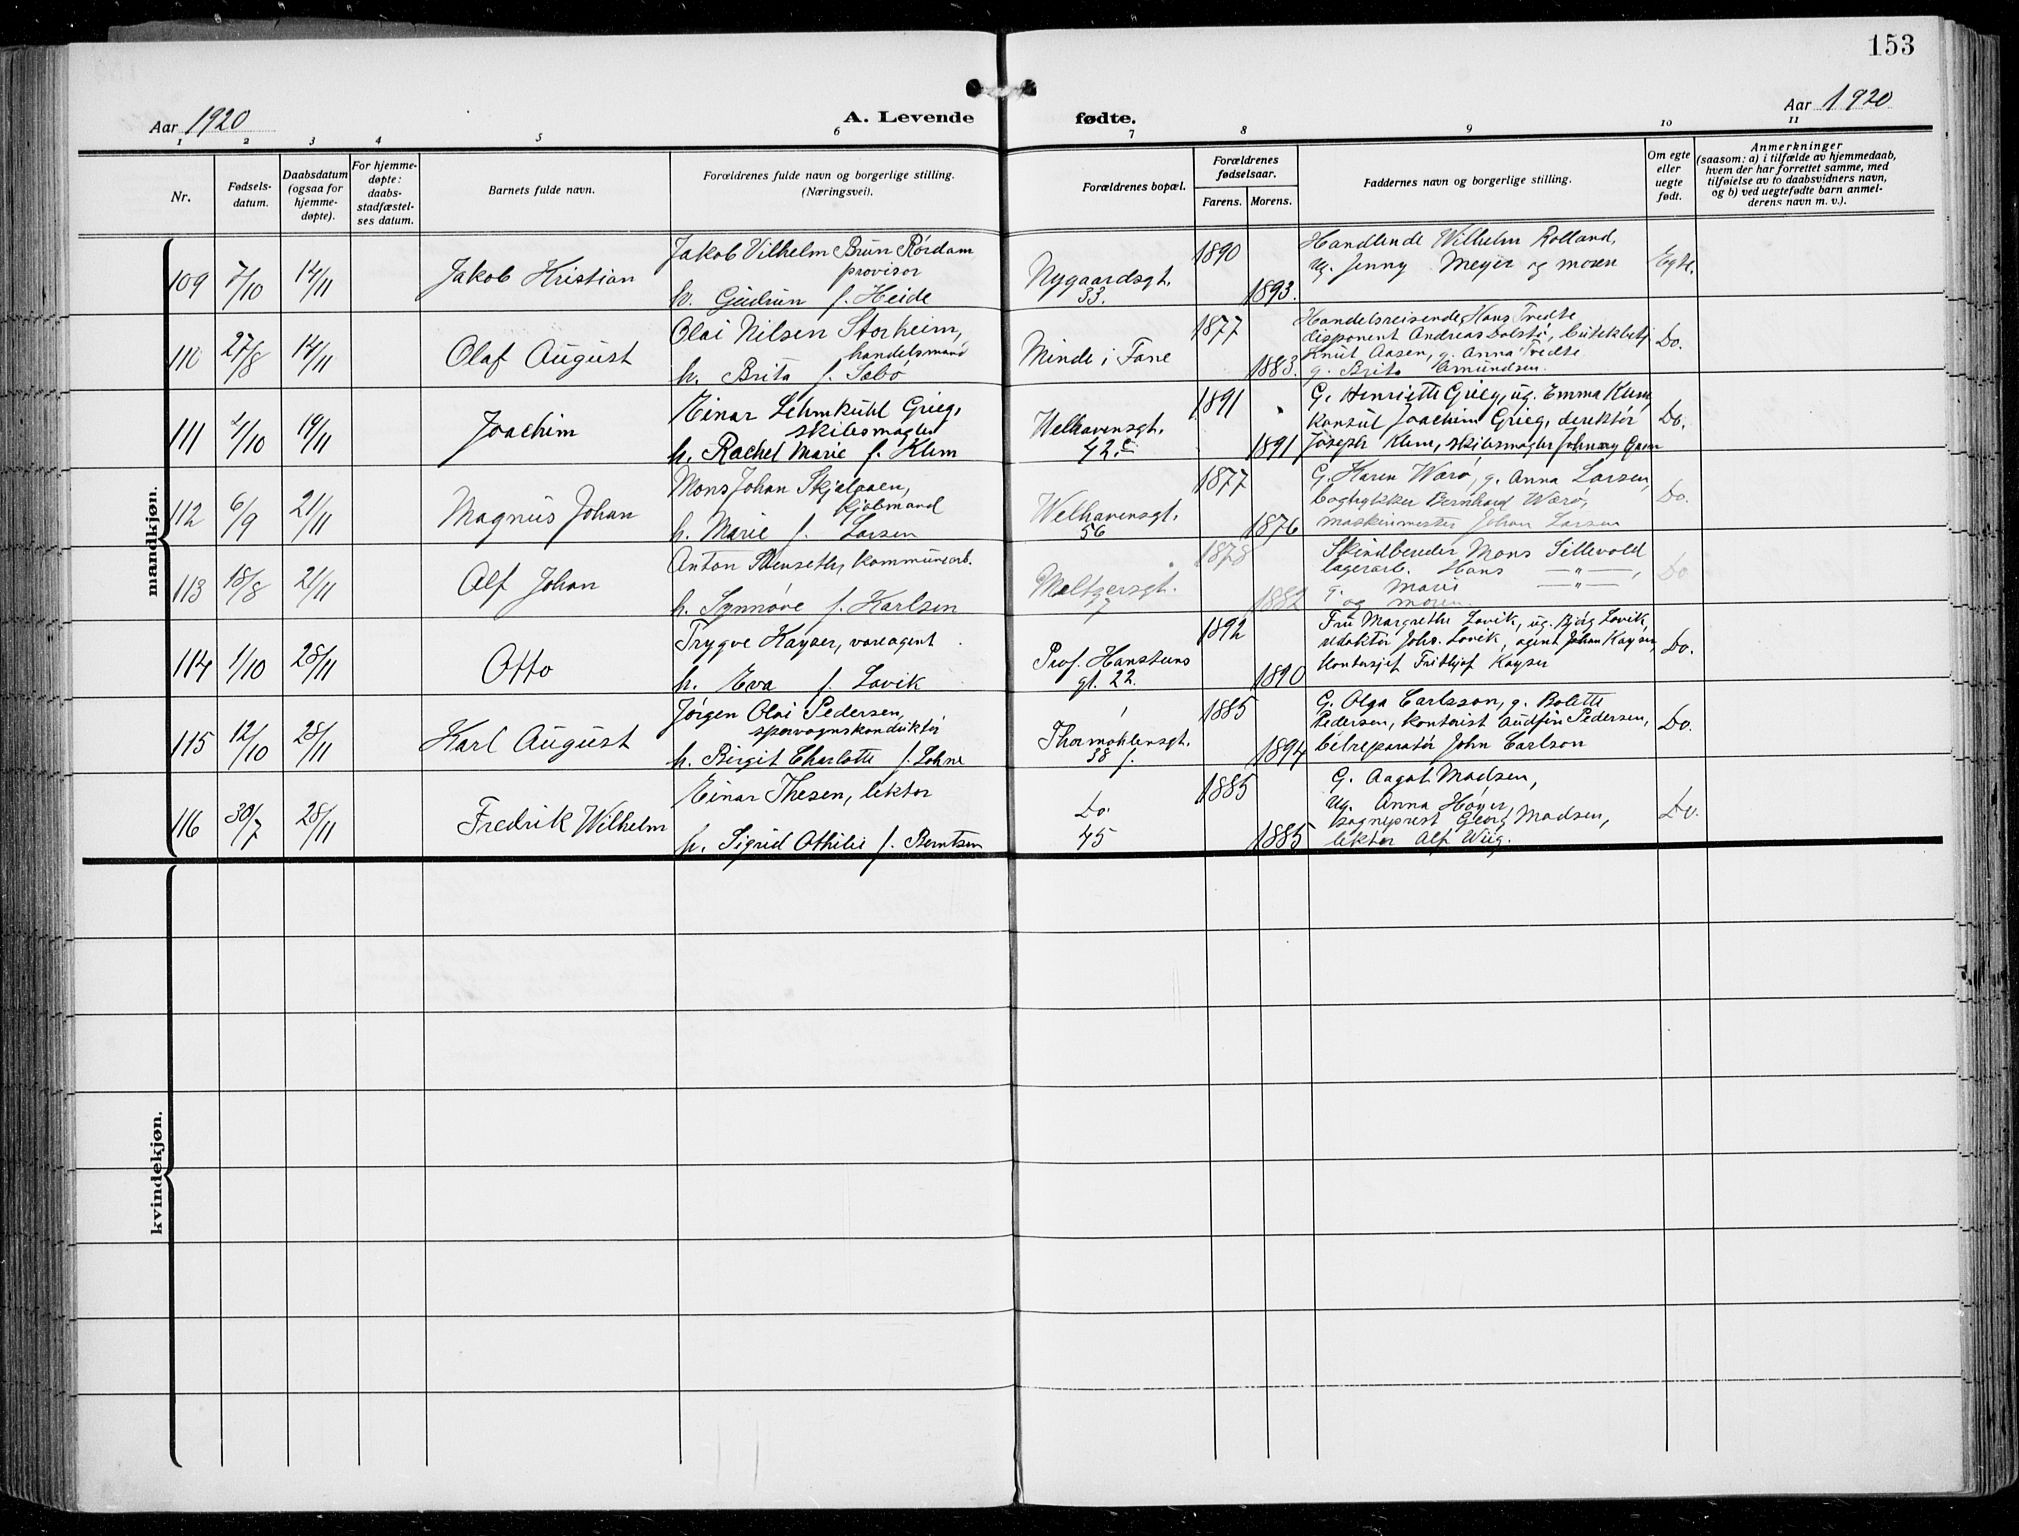 153
Aar 1920
A. Levende fødte.
Aar 1920
1 2 3 4 5 6 7 8 9 10 11
Nr.
Fødsels-
datum.
Daabsdatum
(ogsaa for
hjemme-
døpte).
For hjemme-
døpte:
daabs-
stadfæstel-
ses datum.
Barnets fulde navn.
Forældrenes fulde navn og borgerlige stilling.
(Næringsvei).
Forældrenes bopæl.
Forældrenes
fødselsaar.
Farens. Morens.
Faddernes navn og borgerlige stilling.
Om egte
eller
uegte
født.
Anmerkninger
(saasom: a) i tilfælde av hjemmedaab,
hvem der har forrettet samme, med
tilføielse av to daabsvidners navn,
og b) ved uegtefødte barn anmel-
derens navn m. v.).
mandkjøn.
109 7/10 14/11 Jakob Kristian
Jakob Vilhelm Brun Rørdam
provisor
h. Gudrun f. Heide
Nygaardsgt.
33.
1890
1893.
Handlende Wilhelm Rolland,
ug. Jenny Meyer og moren
Egte.
110 27/8 14/11 Olaf August
Olai Nilsen Storheim,
handelsmand
h. Brita f. Sæbö
Minde i Fane
1877
1883.
Handelsreisende Hans Tredte
disponent Andreas Dalstö, butikkbetj
Knut Aasen, g. Anna Tredte
g. Brita Amundsen.
Do.
111 2/10 19/11 Joachim
Einar Lehmkuhl Grieg,
skibsmægler
h. Rachel Marie f. Klem
Welhavensgt.
42.c
1891
1891
G. Henriette Grieg, ug. Emma Klem
konsul Joachim Grieg, direktør
Joseph Klem, skibsmægler Johnny
Do.
112 6/9 21/11 Magnus Johan
Mons Johan Skjelaaen,
kjøbmand
h. Marie f. Larsen
Welhavensgt.
56
1877
1876
G. Karen Wærö, g. Anna Larsen,
bogtrykker Bernhard Wærö,
maskinmester Johan Larsen
Do.
113 18/8 21/11 Alf Johan
Anton Stenseth, kommunearb.
h. Synnøve f. Karlsen
Meltzersgt.
7
1878
1882
Skindbereder Mons Sillevold
lagerarb. Hans —"—,
g. Marie —"—
og moren.
Do
114 1/10 28/11 Otto
Trygve Kayser, vareagent
h. Eva f. Lavik
Prof. Hansteens
gt. 22.
1892
1890
Fru Margrethe Lavik, ug. Bjög Lavik,
redaktør Johs. Lavik, agent Johan Kayser,
Kontorsjef Fridtjof Kayser
Do.
115 12/10 28/11 Karl August
Jørgen Olai Pedersen,
sporvognskonduktør
h. Birgit Charlotte f. Lohne
Thormøhlensgt.
38 f.
1885
1894
G. Olga Carlsson, g. Bolette
Pedersen, kontorist Audfin Pedersen,
bilreparatør John Carlson
Do.
116 30/7 28/11 Fredrik Wilhelm
Einar Thesen, lektor
h. Sigrid Othilie f. Berntsen
Do.
45
1885
1885
G. Aagot Madsen,
ug. Anna Höyer,
sogneprest Georg Madsen,
lektor Alf Wiig.
Do.
kvindekjøn.